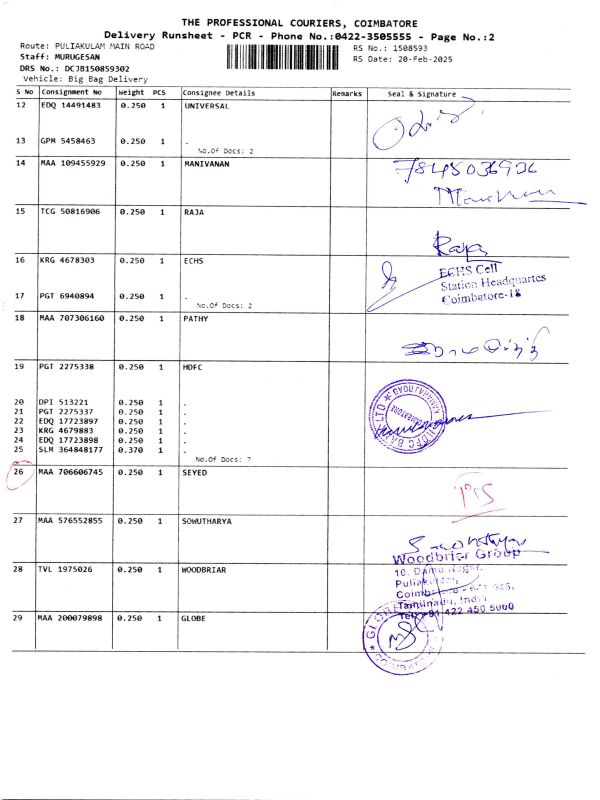 THE PROFESSIONAL COURIERS, COIMBATORE
Delivery Runsheet - PCR - Phone No.:0422-3505555 - Page No.:2
Route: PULIAKULAM MAIN ROAD
Staff: MURUGESAN
DRS No.: DCJB150859302
Vehicle: Big Bag Delivery
RS No.: 1508593
RS Date: 20-Feb-2025
S No Consignment No Weight PCS Consignee Details Remarks Seal & Signature
12 EDQ 14491483 0.250 1 UNIVERSAL
13 GPM 5458463 0.250 1 .
No.Of Docs: 2
14 MAA 109455929 0.250 1 MANIVANAN
15 TCG 50816906 0.250 1 RAJA
Raja
16 KRG 4678303 0.250 1 ECHS
ECHS Cell
Station Headquartes
Coimbatore-18
17 PGT 6940894 0.250 1 .
No.Of Docs: 2
18 MAA 707306160 0.250 1 PATHY
19 PGT 2275338 0.250 1 HDFC
HDFC BANK LTD
COIMBATORE
20 DPI 513221 0.250 1 .
21 PGT 2275337 0.250 1 .
22 EDQ 17723897 0.250 1 .
23 KRG 4679883 0.250 1 .
24 EDQ 17723898 0.250 1 .
25 SLM 364848177 0.370 1 .
No.Of Docs: 7
26 MAA 706606745 0.250 1 SEYED
27 MAA 576552855 0.250 1 SOWUTHARYA
28 TVL 1975026 0.250 1 WOODBRIAR
Woodbriar Group
Tamilnadu, India
Tel: +91 422 450 5000
29 MAA 200079898 0.250 1 GLOBE